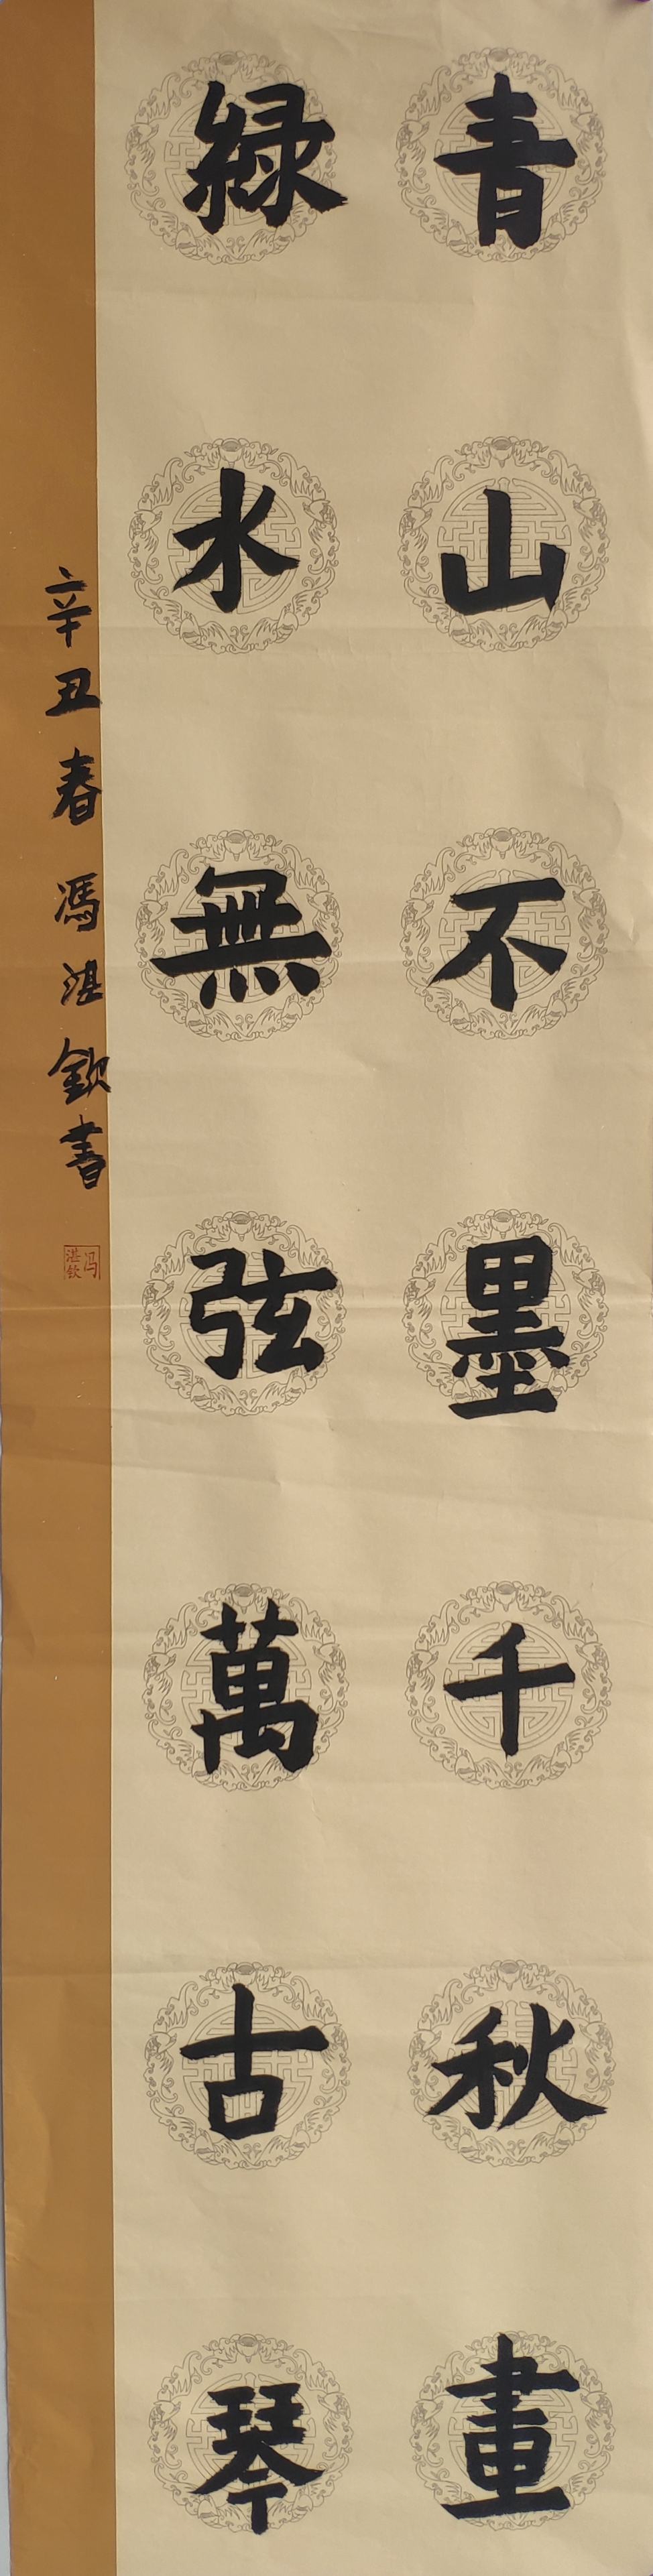 青山不墨千秋畫
綠水無弦萬古琴
辛丑春馮湛欽書
冯湛钦